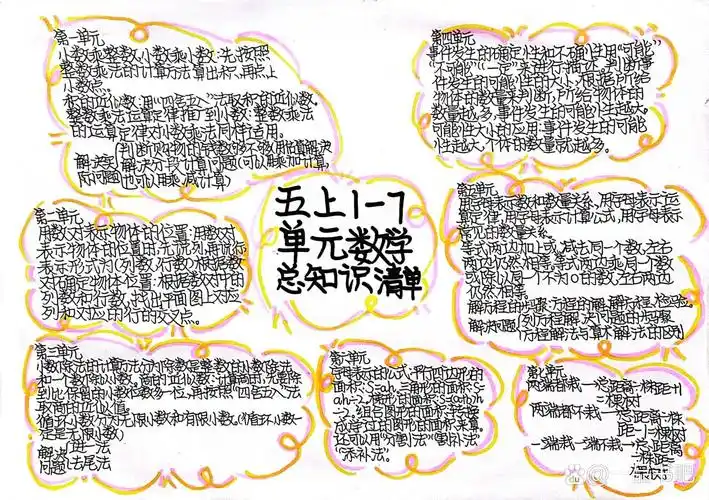 第一单元
小数乘整数、小数乘小数:先按照
整数乘法的计算方法算出积、再点上
小数点。
积的近似数:用"四舍五入"法取积的近似数。
整数乘法运算定律推广到小数:整数乘法
的运算定律对小数乘法同样适用。
(判断购物的钱数够不够用估算解决
解决实 解决分段计算问题(可以用乘加计算,
际问题 也可以用乘、减计算)
第二单元
用数对表示物体的位置:用数对
表示物体的位置时,先说列,再说行
表示形式为(列数,行数)根据数
对在方格上确定物体位置:根据数对中的
列数和行数,找出平面图上对应
列和对应的行的交叉点。
第三单元
小数除法的计算方法分为除数是整数的小数除法
和一个数除以小数。商的近似数:计算商时,先除到
比保留的小数位数多一位,再按照"四舍五入"法
取商的近似值。
循环小数分为无限小数和有限小数。(循环小数一
定是无限小数)
解决 进一法
问题 去尾法
五上1-7
单元数学
总知识清单
第四单元
事件发生的确定性和不确定性用"可能"
"不可能""一定"来进行描述。判断事
件发生的可能性的大小:根据所给
物体的数量来判断,所给物体的
数量越多,事件发生的可能性越大。
可能性大小的应用:事件发生的可能
性越大,个体的数量就越多。
第五单元
用字母表示数和数量关系、用字母表示运
算定律,用字母表示计算公式,用字母表示
常见的数量关系。
等式两边加上或减去同一个数,左右
两边仍然相等。等式两边乘同一个数
或除以同一个不为0的数,左右两边
仍然相等。
解方程的步骤:方程的解、解方程、检验。
解决问题 (列方程解决问题的步骤
(方程解法与算术解法的区别
第六单元
字母表示的公式:平行四边形的
面积:S=ah.三角形的面积:S=
ah÷2.梯形的面积:S=(a+b)h
÷2.组合图形的面积:转换
成学过的图形的面积来算。
还可以用"分割法""割补法"
"添补法"。
第七单元
两端都栽→总距离÷株距+1
=棵树
两端都不栽→总距离÷株
距-1=棵树
一端栽一端不栽→总距离
÷株距=
棵树